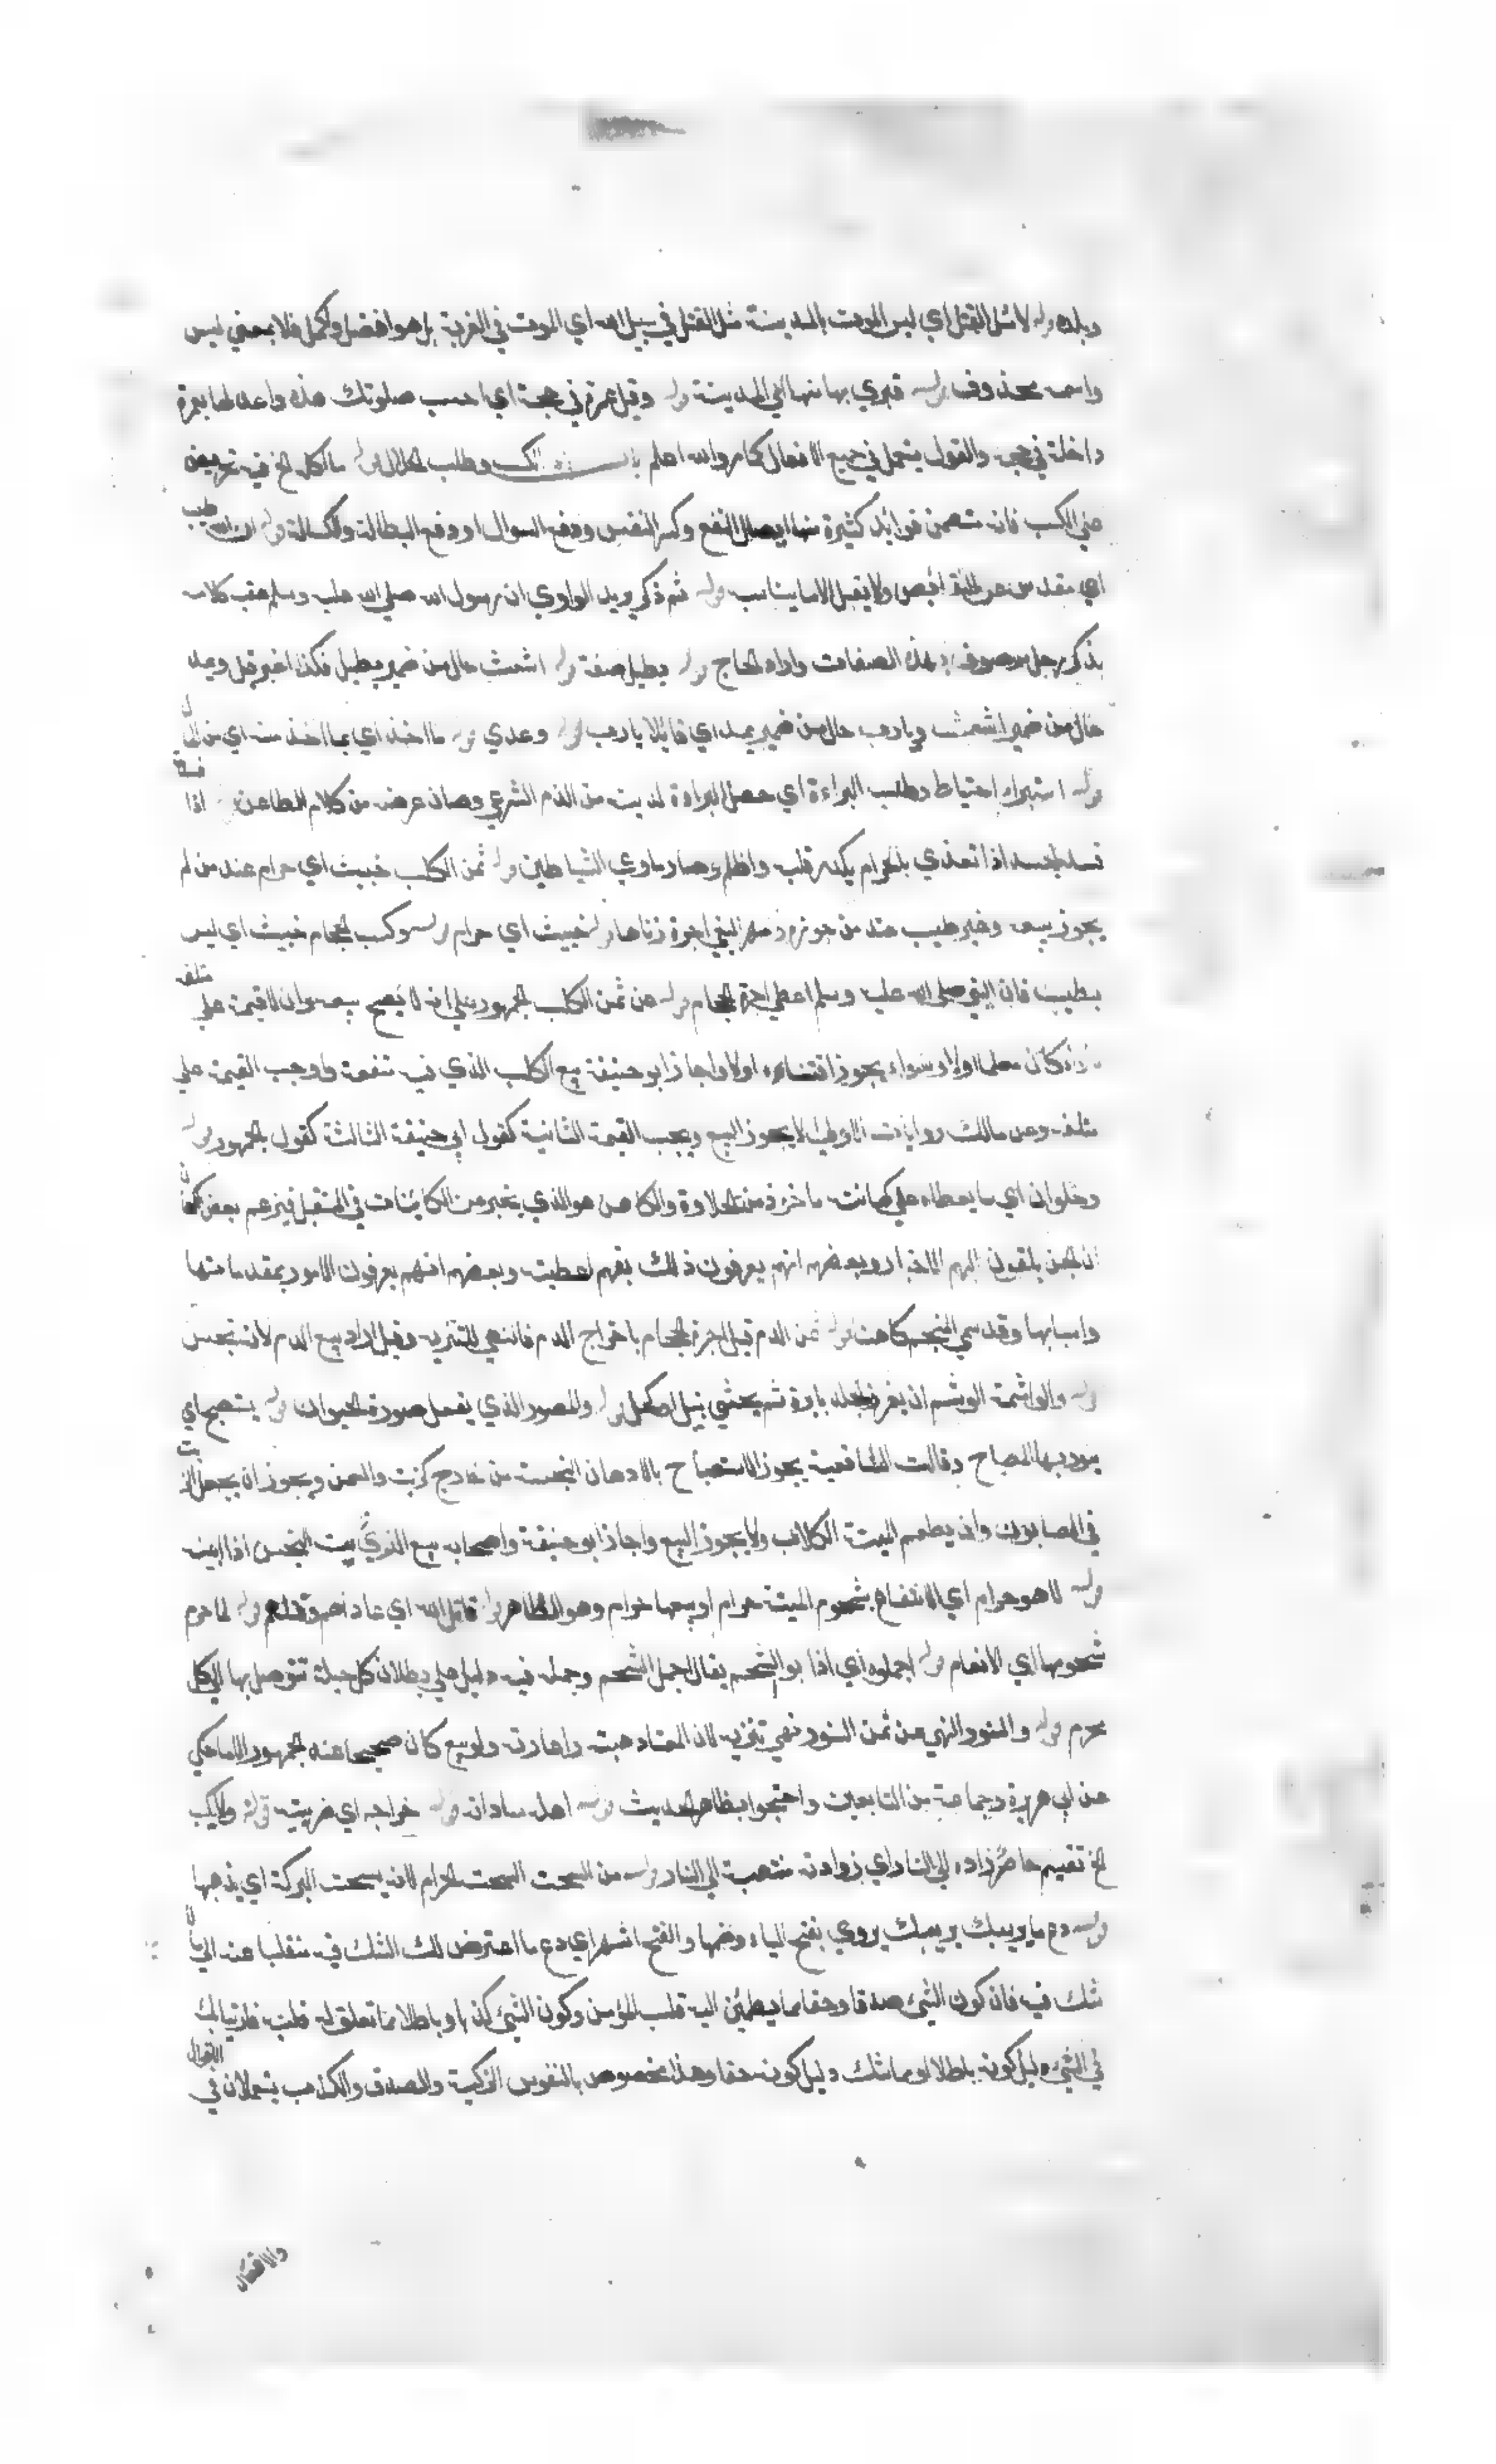 وبلده قوله لا مثل القتل اي ليس الموت بالمدينة مثل القتل في سبيل الله اي الموت في الغربة بل هو افضل واكمل فلا بمعني ليس
واسمه محذوف قوله قبري بها منها اي المدينة قوله وقيل عمرة في حجة اي احسب صلوتك هذه واعدلها بعمرة
داخلة في حجة والقول يستعمل في جميع الافعال كما مر والله اعلم باب الكسب وطلب الحلال قوله ما اكل الخ فيه تحريض
علي الكسب فانه متضمن فوائد كثيرة منها ايصال النفع وكسر النفس ودفع السوال او دفع البطالة والكسالة قوله ان الله طيب
اي مقدس عن النقائص ولا يقبل الا ما يناسب قوله ثم ذكر يريد الراوي ان رسول الله صلي الله عليه وسلم عقب كلامه
بذكر رجل موصوف بهذه الصفات واراد الحاج قوله يطيل صفة قوله اشعث حال من ضمير يطيل فكذا اغبر قيل ويمد
حال من ضمير اشعث ويا رب حال من ضمير يمد اي قائلا يا رب قوله وغذي قوله ما اخذ اي بما اخذ منه اي من المال
قوله استبرأ احتياط وطلب البراءة اي حصل البراءة لدينه من الذم الشرعي وصان عرضه من كلام الطاعن قوله اذا فسدت
فسد الجسد اذا تغذي بالحرام يكدر قلبه واظلم وصار ماوي الشياطين قوله ثمن الكلب خبيث اي حرام عند من لم
يجوز بيعه وغير طيب عند من جوزه ومهر البغي اجرة زناها قوله خبيث اي حرام قوله وكسب الحجام خبيث اي ليس
بطيب فان النبي صلي الله عليه وسلم اعطي اجرة الحجام قوله عن ثمن الكلب الجمهور علي انه لا يصح بيعه وان لا قيمة علي متلفه
سواء كان معلما او لا وسواء يجوز اقتناءه او لا واجاز ابو حنيفة بيع الكلب الذي فيه منفعة واوجب القيمة علي
متلفه وعن مالك روايات الاولي لا يجوز البيع ويجب القيمة الثانية كقول ابي حنيفة الثالثة كقول الجمهور قوله
وحلوان اي ما يعطاه علي كهانته ماخوذ من الحلاوة والكاهن هو الذي يخبر عن الكائنات في المستقبل فيزعم بعض الكهان
ان الجن يلقون اليهم الاخبار وبعضهم انهم يعرفون ذلك بفهم اعطيته وبعضهم انهم يعرفون الامور بمقدماتها
واسبابها وقد سمي المنجم كاهنا قوله ثمن الدم قيل اجرة الحجام باخراج الدم فالنهي للتنزيه وقيل اراد بيع الدم لانه نجس
قوله والواشمة الوشم ان يغرز الجلد بابرة ثم يحشي بنيل او كحل قوله والمصور الذي يفعل صورة الحيوان قوله يستصبح اي
ينور بها المصباح وقالت الشافعية يجوز الاستصباح بالادهان النجسة من خارج كزيت والسمن ويجوز ان يجعل الزيت
في الصابون وان يطعم الميتة الكلاب ولا يجوز البيع واجاز ابو حنيفة واصحابه بيع الزيت النجس اذا بينه
قوله لا هو حرام اي الانتفاع بشحوم الميتة حرام او بيعها حرام وهو الظاهر قوله قاتل الله اي عاداهم وقتلهم قوله لما حرم
شحومها اي الانعام قوله اجملوه اي اذابوا الشحم يقال اجمل الشحم وجمله فيه دليل علي بطلان كل حيلة تتوصل بها الي كل
محرم قوله والسنور النهي عن ثمن السنور نهي تنزيه لان المعتاد هبته واعارته ولو بيع كان صحيحا عند الجمهور الا ما حكي
عن ابي هريرة وجماعة من التابعين واحتجوا بظاهر الحديث قوله اهله ساداته قوله خراجه اي ضريبته قوله ولا يكسب
الخ تقسيم حاصر زاده الي النار اي زوادته منتهية الي النار قوله من السحت السحت الحرام لانه يسحت البركة اي يذهبها
قوله دع ما يريبك يريبك يروي بفتح الياء وضمها والفتح اشهر اي دع ما اعترض لك الشك فيه منقلبا عنه الي ما لا
شك فيه فان كون الشئ صدقا وحقا مما يطمئن اليه قلب المؤمن وكون الشئ كذبا وباطلا مما تعلق له قلبه فارتيابك
في الشئ دليل كونه باطلا او مما شك دليل كونه حقا وهذا مخصوص بالنفوس الزكية والصدق والكذب يستعملان في الاقوال
والافعال